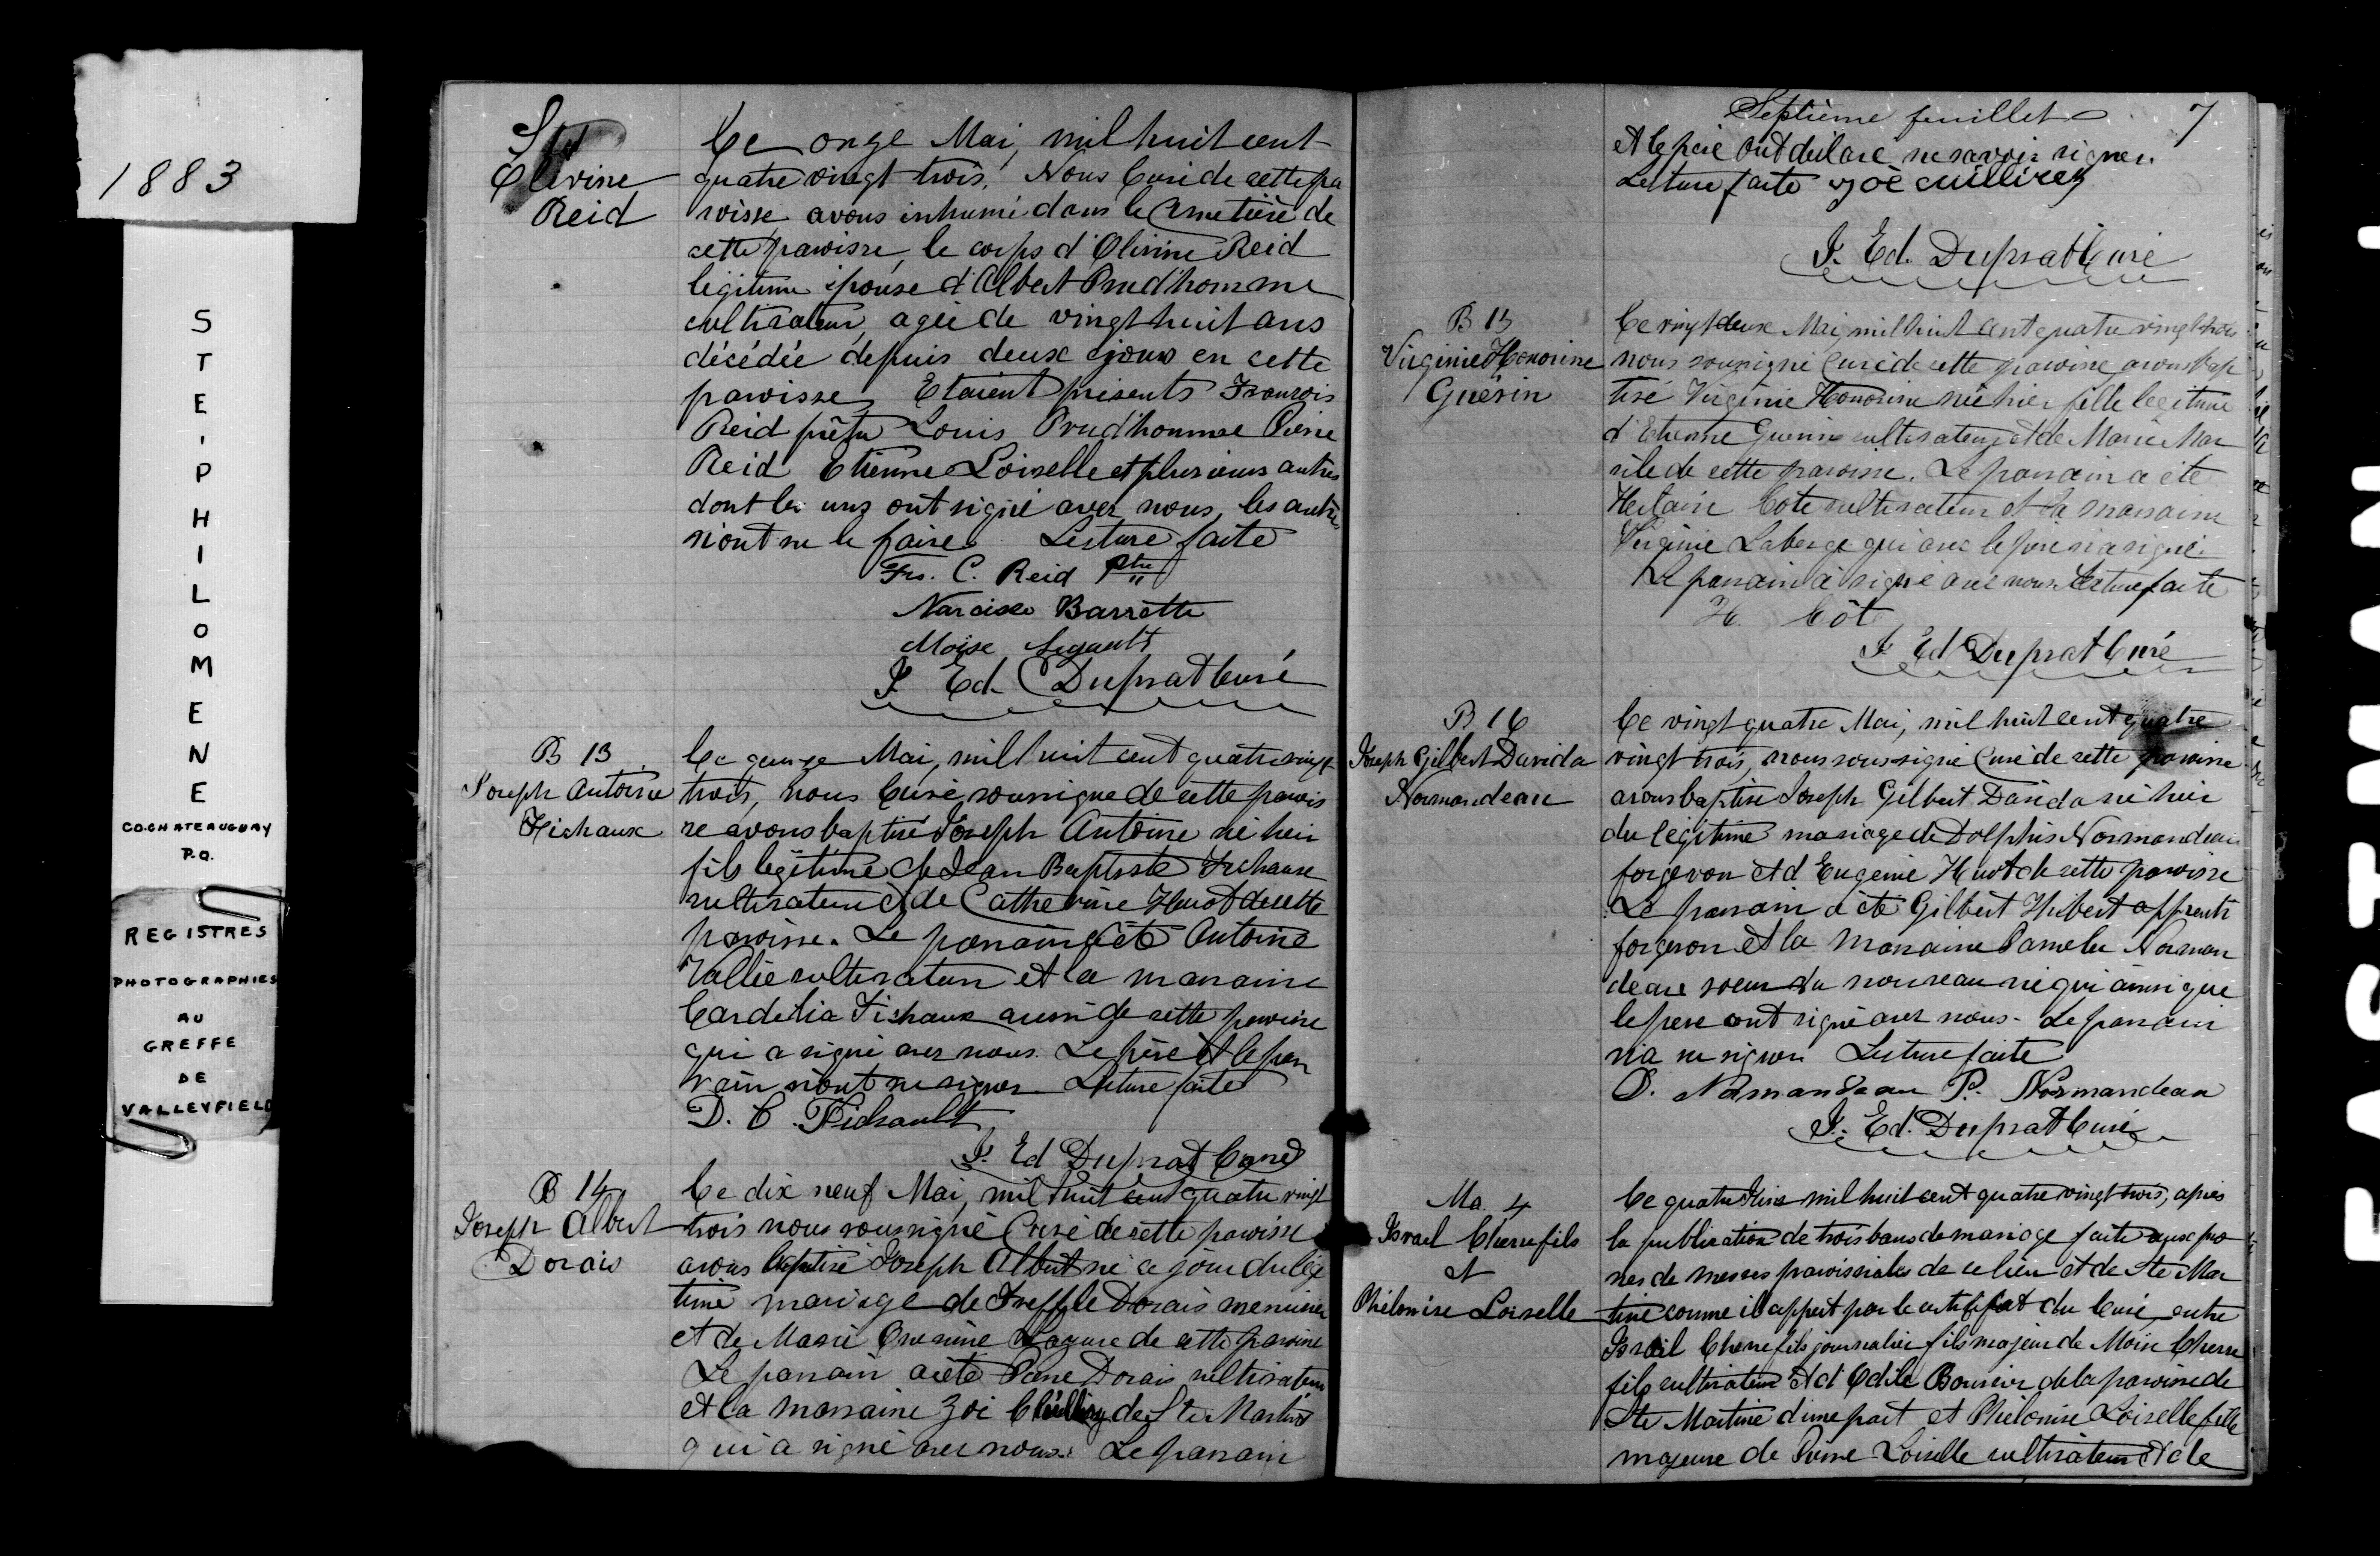 1883
STE-PHILOMENE
CO.CHATEAUGUAY
P.Q.
REGISTRES
PHOTOGRAPHIES
AU
GREFFE
DE
VALLEYFIELD
S
Olivine
Reid
Ce onze Mai, mil huit cent
quatre vingt trois, Nous Curé de cette pa
roisse avons inhumé dans le Cimetière de
cette paroisse, le corps d'Olivine Reid
légitime épouse d'Albert Prud'homme
cultivateur, agée de vingt huit ans
décédée depuis deux jours en cette
paroisse, Etaient présents François
Reid prêtre Louis Prud'homme Pierre
Reid Etienne Loiselle et plusieurs autres
dont les uns ont signé avec nous, les autres
n'ont su le faire. Lecture faite
Frs. C. Reid Ptre
Narcisse Barrette
Moïse Legault
J. Ed. Duprat Curé
B 13
Joseph Antoine
Fichaux
Ce quinze Mai, mil huit cent quatre vingt
trois, nous Curé soussigné de cette parois
se avons baptisé Joseph Antoine né hier
fils légitime de Jean Baptiste Fichaux
cultivateur et de Catherine Huot de cette
paroisse. Le parrain a été Antoine
Vallée cultivateur et la marraine
Cordelia Fichaux aussi de cette paroisse
qui a signé avec nous. Le père et le par
rain n'ont su signer. Lecture faite
D. C. Fichault
J. Ed Duprat Curé
B 14
Joseph Albert
Dorais
Ce dix neuf Mai, mil huit cent quatre vingt
trois nous soussigné Curé de cette paroisse
avons baptisé Joseph Albert né ce jour du légi
time mariage de Treffle Dorais menuisier
et de Marie Onesime de cette paroisse
Le parrain a été Pierre Dorais cultivateur
et la marraine Zoé Cuillirez de Ste Martine
qui a signé avec nous. Le parrain
Septième feuillet 7
et le père ont déclaré ne savoir signer.
Lecture faite Zoé Cuillirez
J. Ed. Duprat Curé
B 15
Virginie Honorine
Guérin
Ce vingt deux Mai, mil huit cent quatre vingt trois
nous soussigné Curé de cette paroisse avons bap
tisé Virginie Honorine née hier fille légitime
d'Etienne Guérin cultivateur et de Marie Mar
cile de cette paroisse. Le parrain a été
Hectaire Coté cultivateur et la marraine
Virginie Laberge qui avec le père n'a signé.
Le parrain a signé avec nous. Lecture faite
H. Côt
J. Ed Duprat Curé
B 16
Joseph Gilbert Davida
Normandeau
Ce vingt quatre Mai, mil huit cent quatre
vingt trois, nous soussigné Curé de cette paroisse
avons baptisé Joseph Gilbert Davida né hier
du légitime mariage de Dolphis Normandeau
forgeron et d'Eugenie Huot de cette paroisse
Le parrain a été Gilbert Hébert apprenti
forgeron et la marraine Pamela Norman
deau soeur du nouveau né qui ainsi que
le père ont signé avec nous. Le parrain
n'a su signer. Lecture faite
D. Normandeau P. Normandeau
J. Ed. Duprat Curé
Ma. 4
Israel Chierrefils
et
Philomise Loiselle
Ce quatre Juin mil huit cent quatre vingt trois, après
la publication de trois bans de mariage faite aux pro
nes de messes paroissiales de ce lieu et de Ste Mar
tine comme il appert par le certificat du Curé, entre
Israël Chierrefils journalier fils majeur de Moïse Chierre
fils cultivateur et d'Odile Boursier de la paroisse de
Ste Martine d'une part et Philomise Loiselle fille
majeure de Pierre Loiselle cultivateur et de